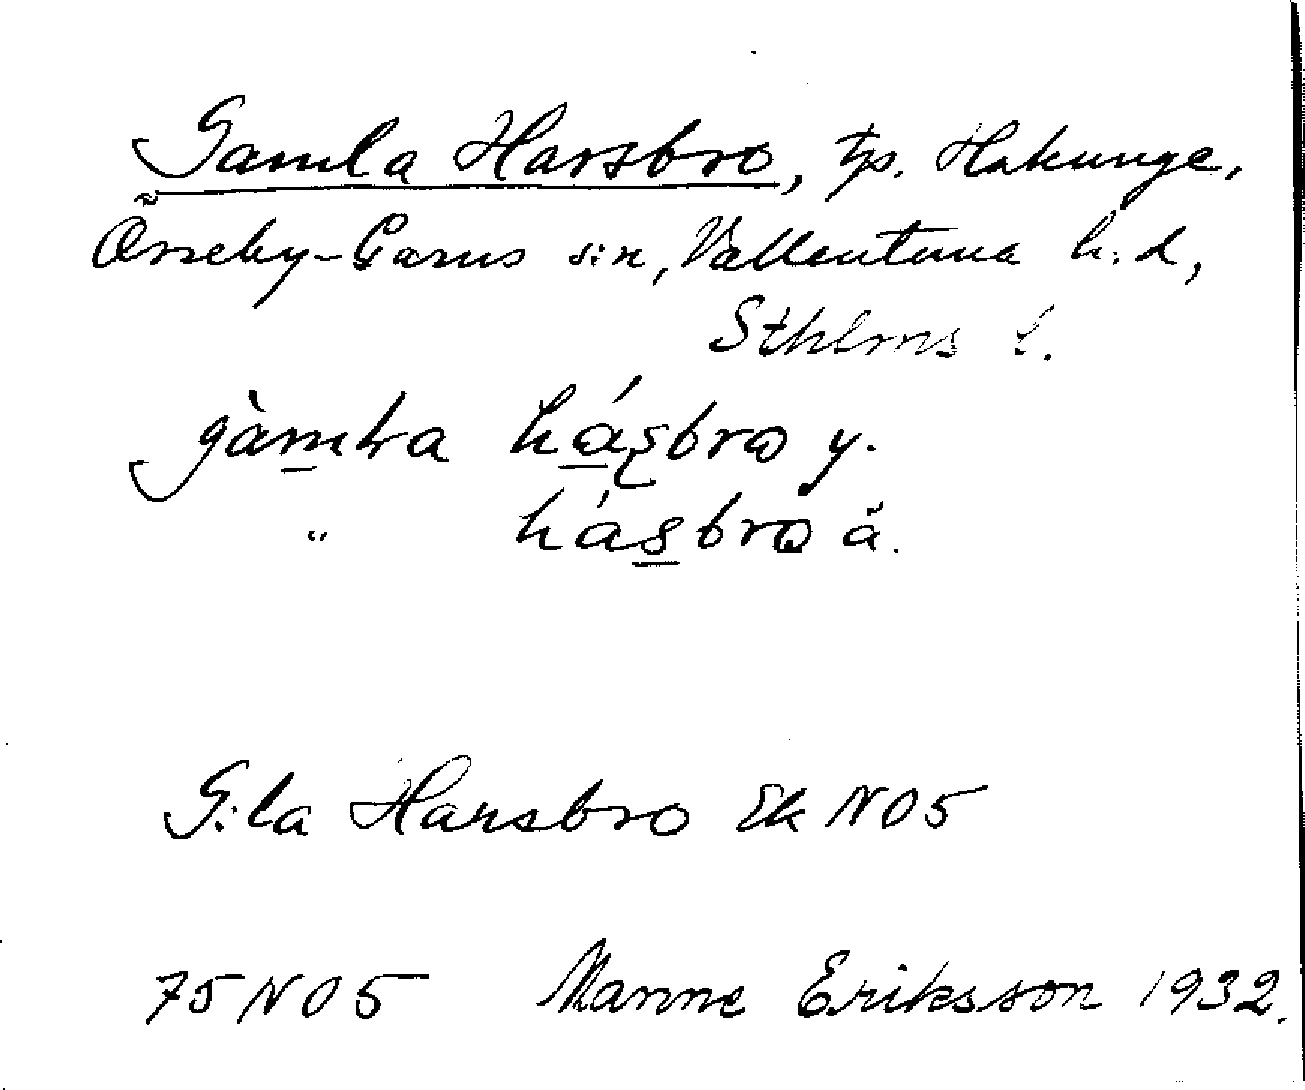 Gamla Harsbro, tp. Hakunge,
Össeby-Garns sn, Vallentuna h.d,
Sthlms l.
gàmɫa hásbrω y.
" hásbrω ä.
G:la Harsbro Ek NO5
75NO5 Manne Eriksson 1932.